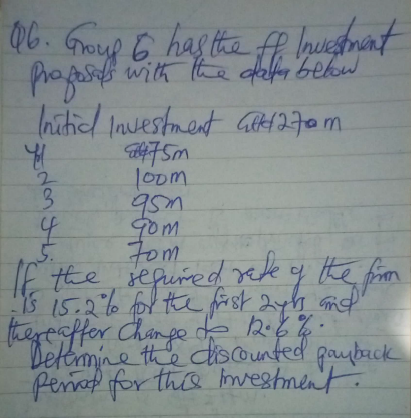 Q6. Group 6 has the ff Investment
proposals with the data below
Initial Investment GH¢270m
Y1 75m
2 100m
3 95m
4 90m
5. 70m
If the required rate of the firm
is 15.2% for the first 2yrs and
thereafter change to 12.6%.
Determine the discounted payback
period for this investment.